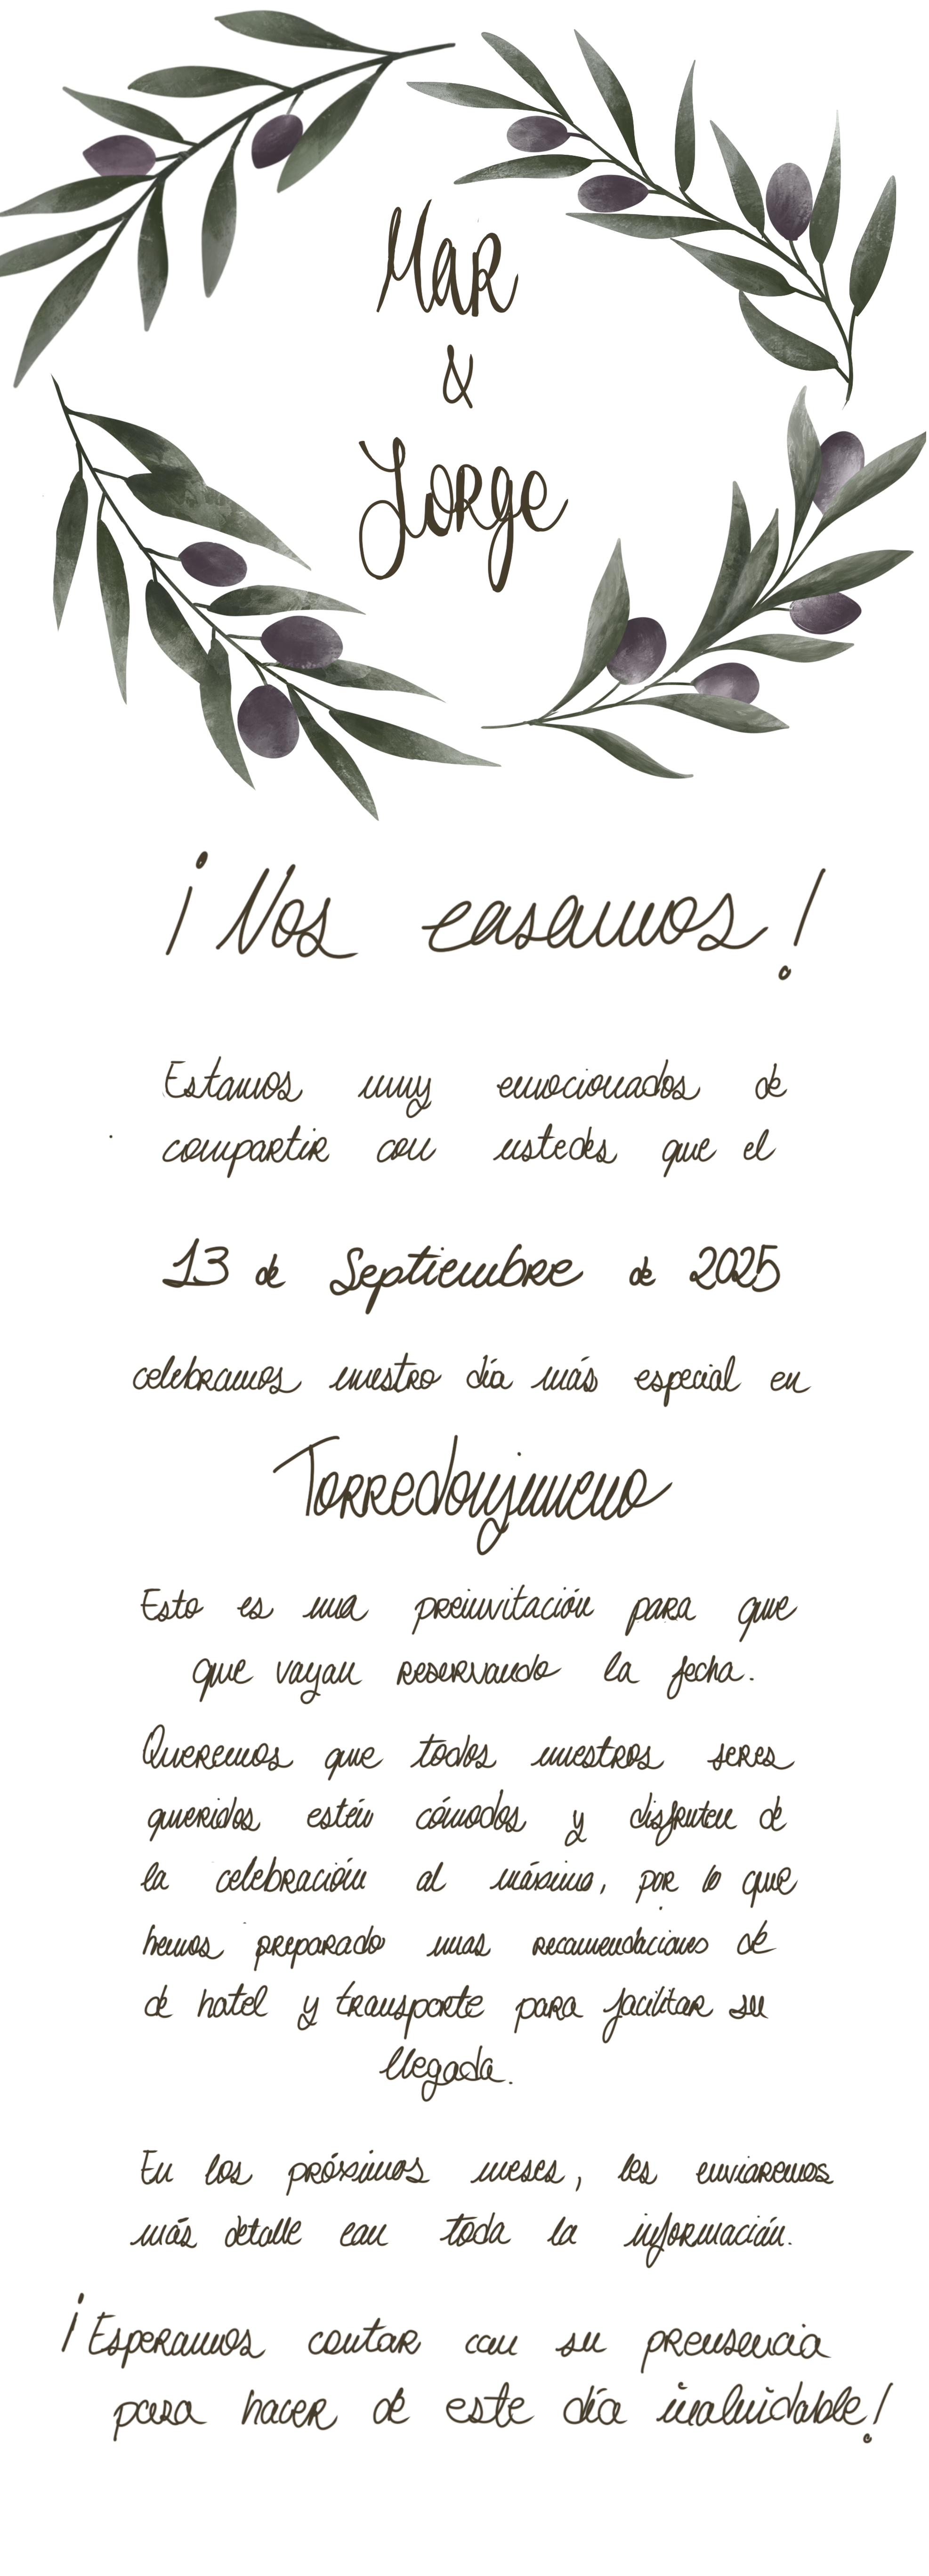 Mar
&
Jorge
¡Nos casamos!
Estamos muy emocionados de
compartir con ustedes que el
13 de Septiembre de 2025
celebramos nuestro día más especial en
Torredonjimeno
Esto es una preinvitación para que
que vayan reservando la fecha.
Queremos que todos nuestros seres
queridos estén cómodos y disfruten de
la celebración al máximo, por lo que
hemos preparado unas recomendaciones de
de hotel y transporte para facilitar su
llegada.
En los próximos meses, les enviaremos
más detalle con toda la información.
¡Esperamos contar con su prensencia
para hacer de este día inolvidable!